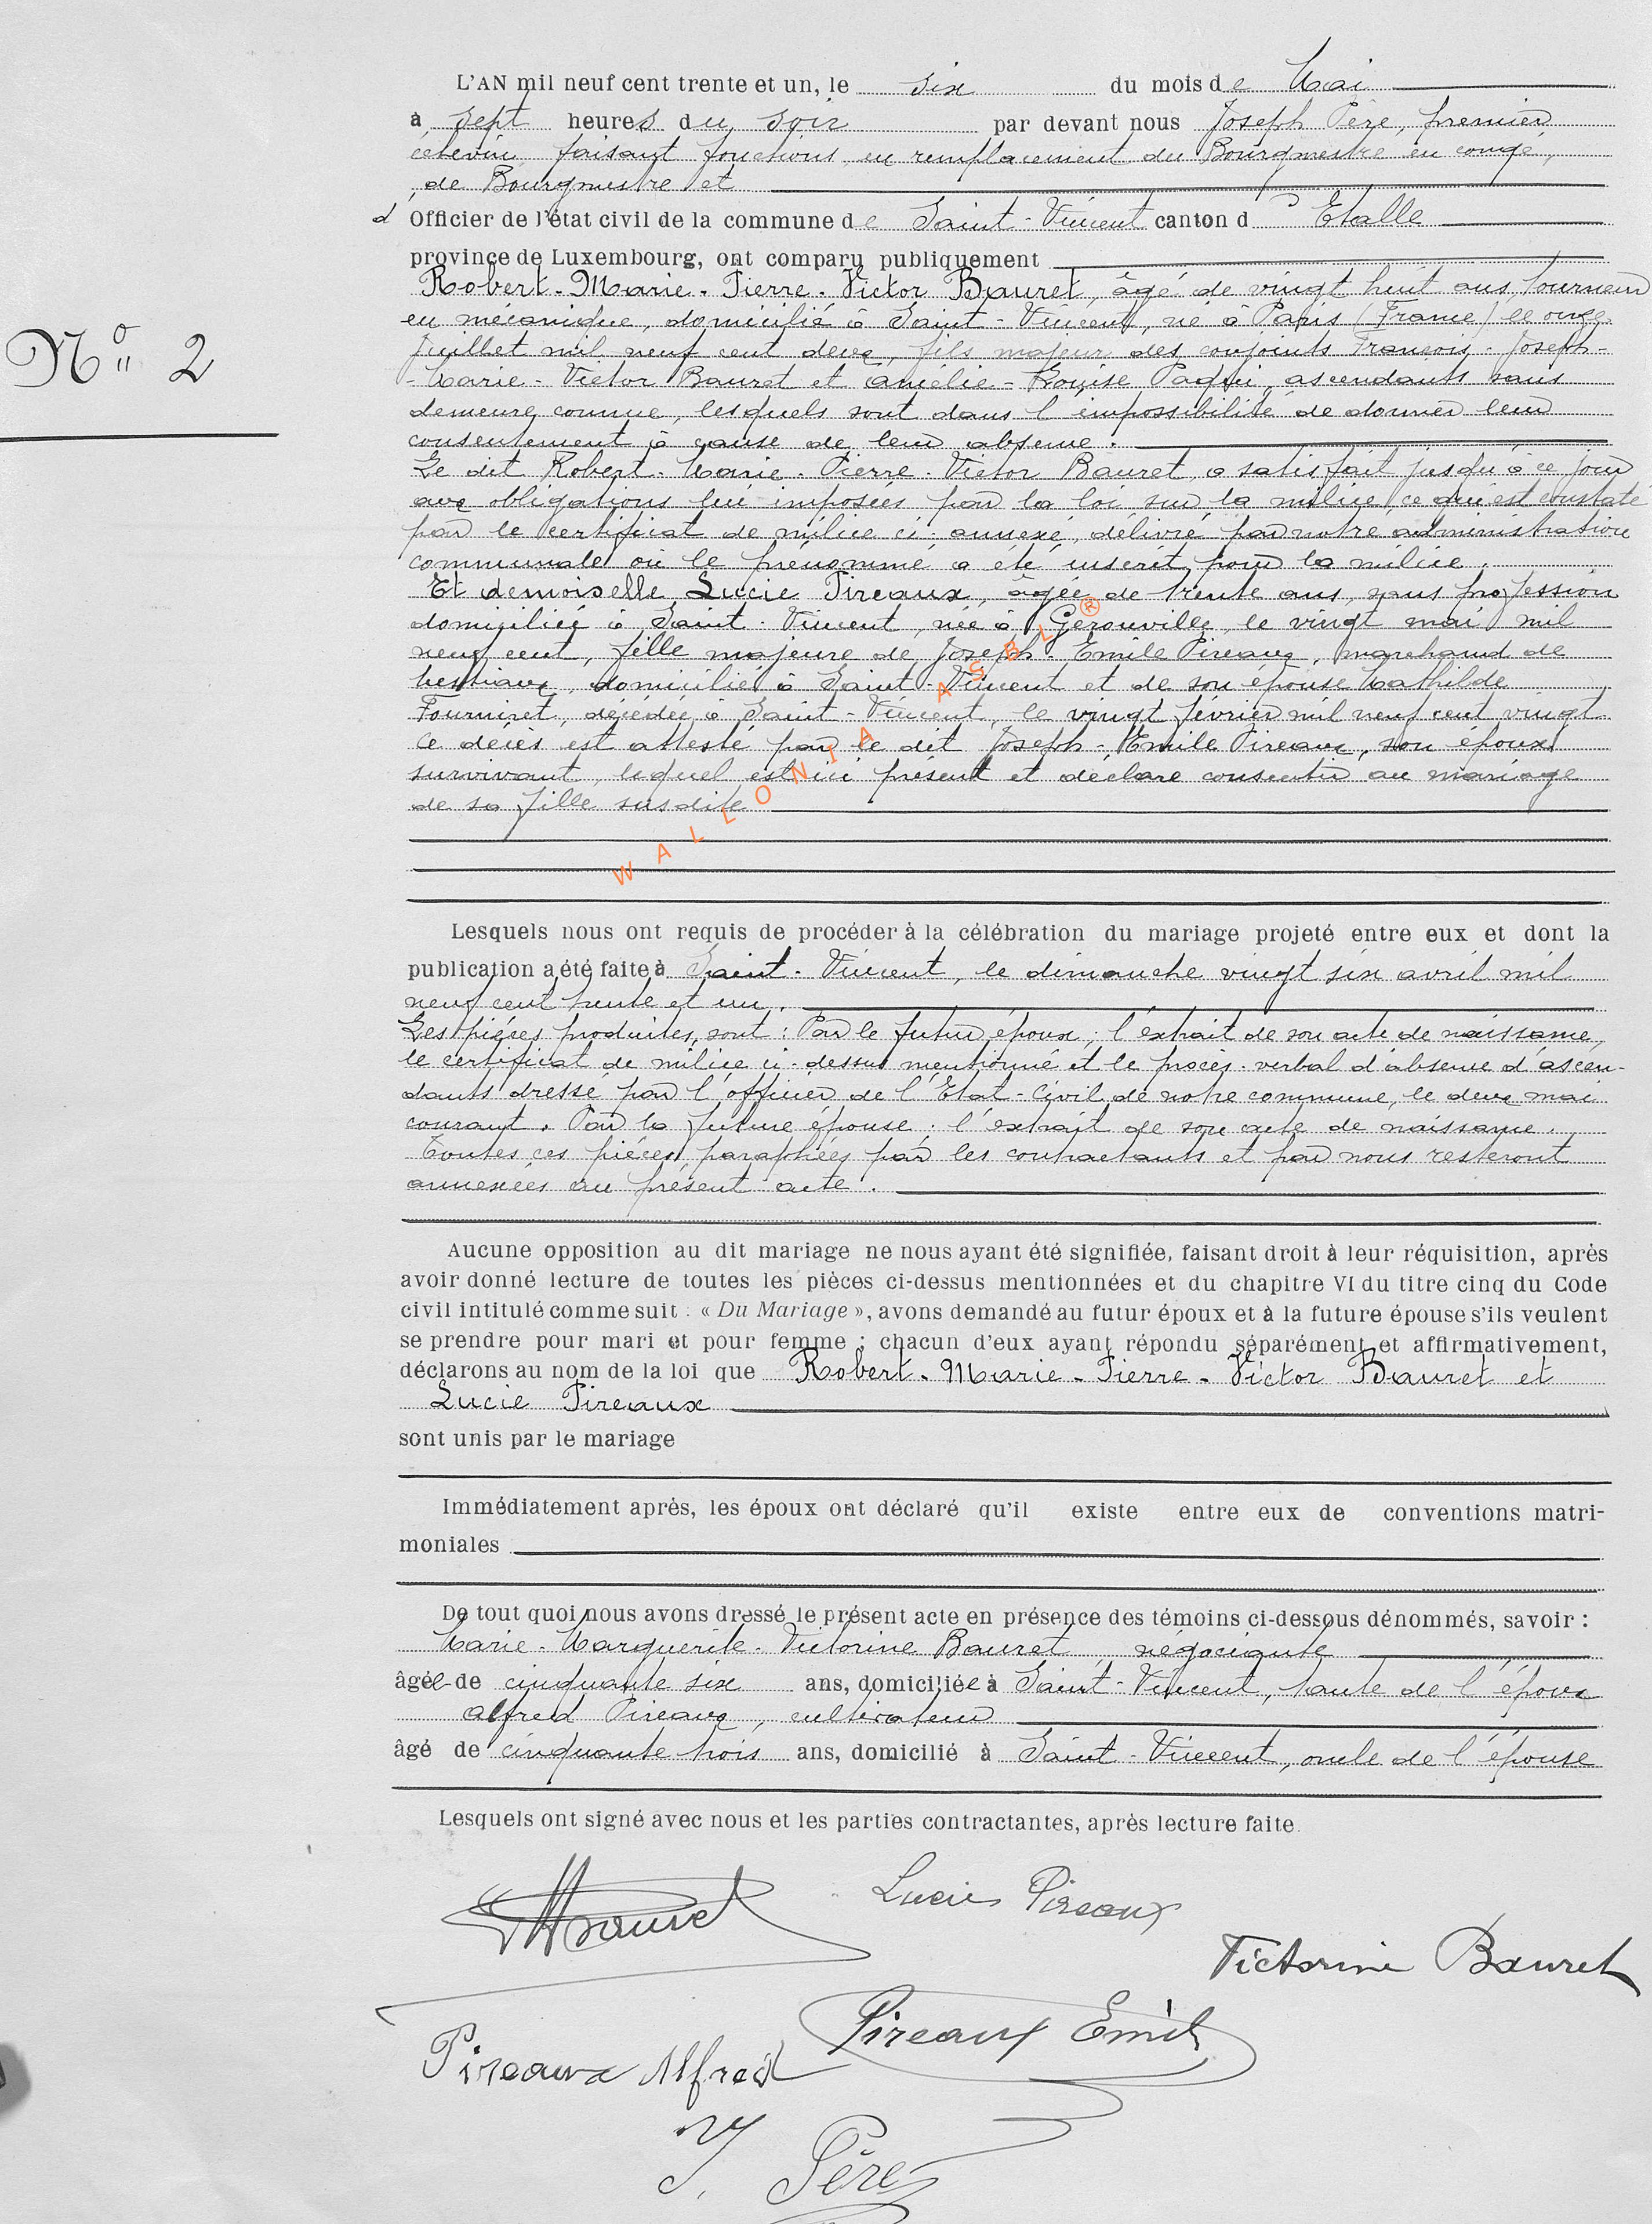 L'AN mil neuf cent trente et un, le six du mois de Mai
à sept heures du soir par devant nous Joseph Père, premier
échevin, faisant fonctions en remplacement du Bourgmestre en congé,
de Bourgmestre et
d'Officier de l'état civil de la commune de Saint-Vincent canton d'Etalle
province de Luxembourg, ont comparu publiquement
Robert-Marie-Pierre-Victor Bauret, âgé de vingt huit ans, tourneur
en mécanique, domicilié à Saint-Vincent, né à Paris (France) le onze
N° 2
Juillet mil neuf cent deux, fils majeur des conjoints François-Joseph-
-Marie-Victor Bauret et Amélie-Louise Paqui, ascendants sans
demeure connue, lesquels sont dans l'impossibilité de donner leur
consentement à cause de leur absence.
Le dit Robert-Marie-Pierre-Victor Bauret, a satisfait jusqu'à ce jour
aux obligations lui imposées par la loi sur la milice, ce qui est constaté
par le certificat de milice ci-annexé, délivré par notre administration
communale où le prénommé a été inscrit pour la milice.
Et demoiselle Lucie Pireaux, âgée de trente ans, sans profession
domiciliée à Saint-Vincent, née à Gérouville, le vingt mai mil
neuf cent, fille majeure de Joseph-Emile Pireaux, marchand de
bestiaux, domicilié à Saint-Vincent et de son épouse Mathilde
Fourniret, décédée à Saint-Vincent, le vingt février mil neuf cent vingt
ce décès est attesté par le dit Joseph-Emile Pireaux, son époux
survivant, lequel est ici présent et déclare consentir au mariage
de sa fille susdite
WALLONIA ASBL ®
Lesquels nous ont requis de procéder à la célébration du mariage projeté entre eux et dont la
publication a été faite à Saint-Vincent, le dimanche vingt six avril mil
neuf cent trente et un.
Les pièces produites, sont : Par le futur époux ; l'extrait de son acte de naissance,
le certificat de milice ci-dessus mentionné et le procès-verbal d'absence d'ascen-
dants dressé par l'officier de l'Etat-Civil de notre commune, le deux mai
courant. Par la future épouse : l'extrait de son acte de naissance.
Toutes ces pièces, paraphées par les contractants et par nous resteront
annexées au présent acte.
Aucune opposition au dit mariage ne nous ayant été signifiée, faisant droit à leur réquisition, après
avoir donné lecture de toutes les pièces ci-dessus mentionnées et du chapitre VI du titre cinq du Code
civil intitulé comme suit : « Du Mariage », avons demandé au futur époux et à la future épouse s'ils veulent
se prendre pour mari et pour femme ; chacun d'eux ayant répondu séparément et affirmativement,
déclarons au nom de la loi que Robert-Marie-Pierre-Victor Bauret et
Lucie Pireaux
sont unis par le mariage
Immédiatement après, les époux ont déclaré qu'il existe entre eux de conventions matri-
moniales
De tout quoi nous avons dressé le présent acte en présence des témoins ci-dessous dénommés, savoir :
Marie-Marguerite-Victorine Bauret, négociante
âgée de cinquante six ans, domiciliée à Saint-Vincent, tante de l'époux
Alfred Pireaux, cultivateur
âgé de cinquante trois ans, domicilié à Saint-Vincent, oncle de l'épouse
Lesquels ont signé avec nous et les parties contractantes, après lecture faite.
Bauret
Lucie Pireaux
Victorine Bauret
Pireaux Emile
Pireaux Alfred
J. Père